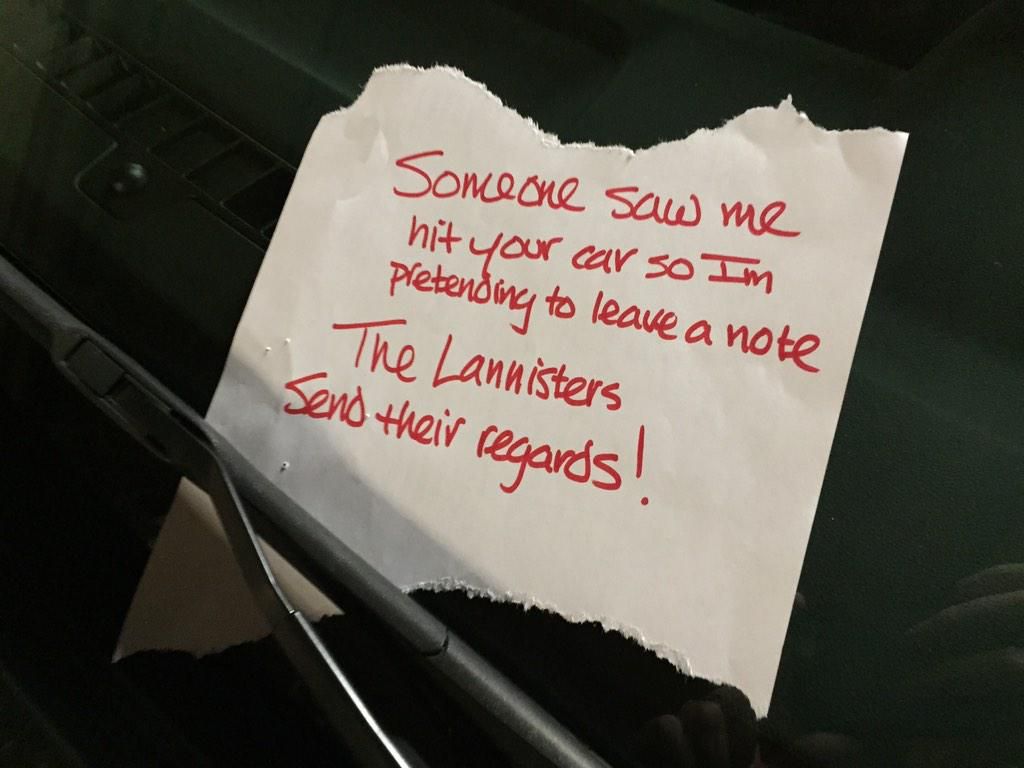 Someone saw me
hit your car so Im
pretending to leave a note
The Lannisters
Send their regards!